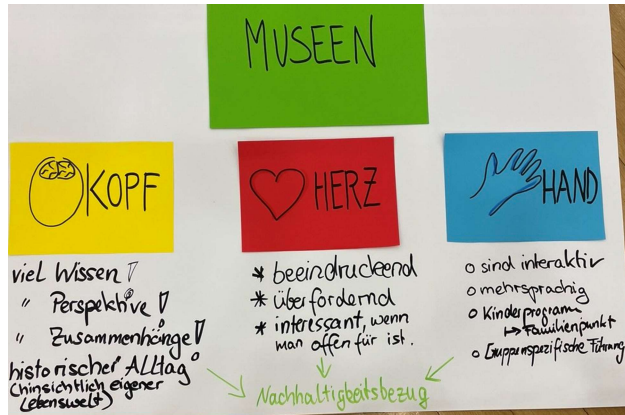 MUSEEN
KOPF
viel Wissen!
" Perspektive!
" Zusammenhänge!
"historischer Alltag"
(hinsichtlich eigener
Lebenswelt)
HERZ
* beeindruckend
* überfordernd
* interessant, wenn
man offen für ist.
HAND
o sind interaktiv
o mehrsprachig
o Kinderprogramm
↳ Familienpunkt
o Gruppenspezifische Führung
Nachhaltigkeitsbezug